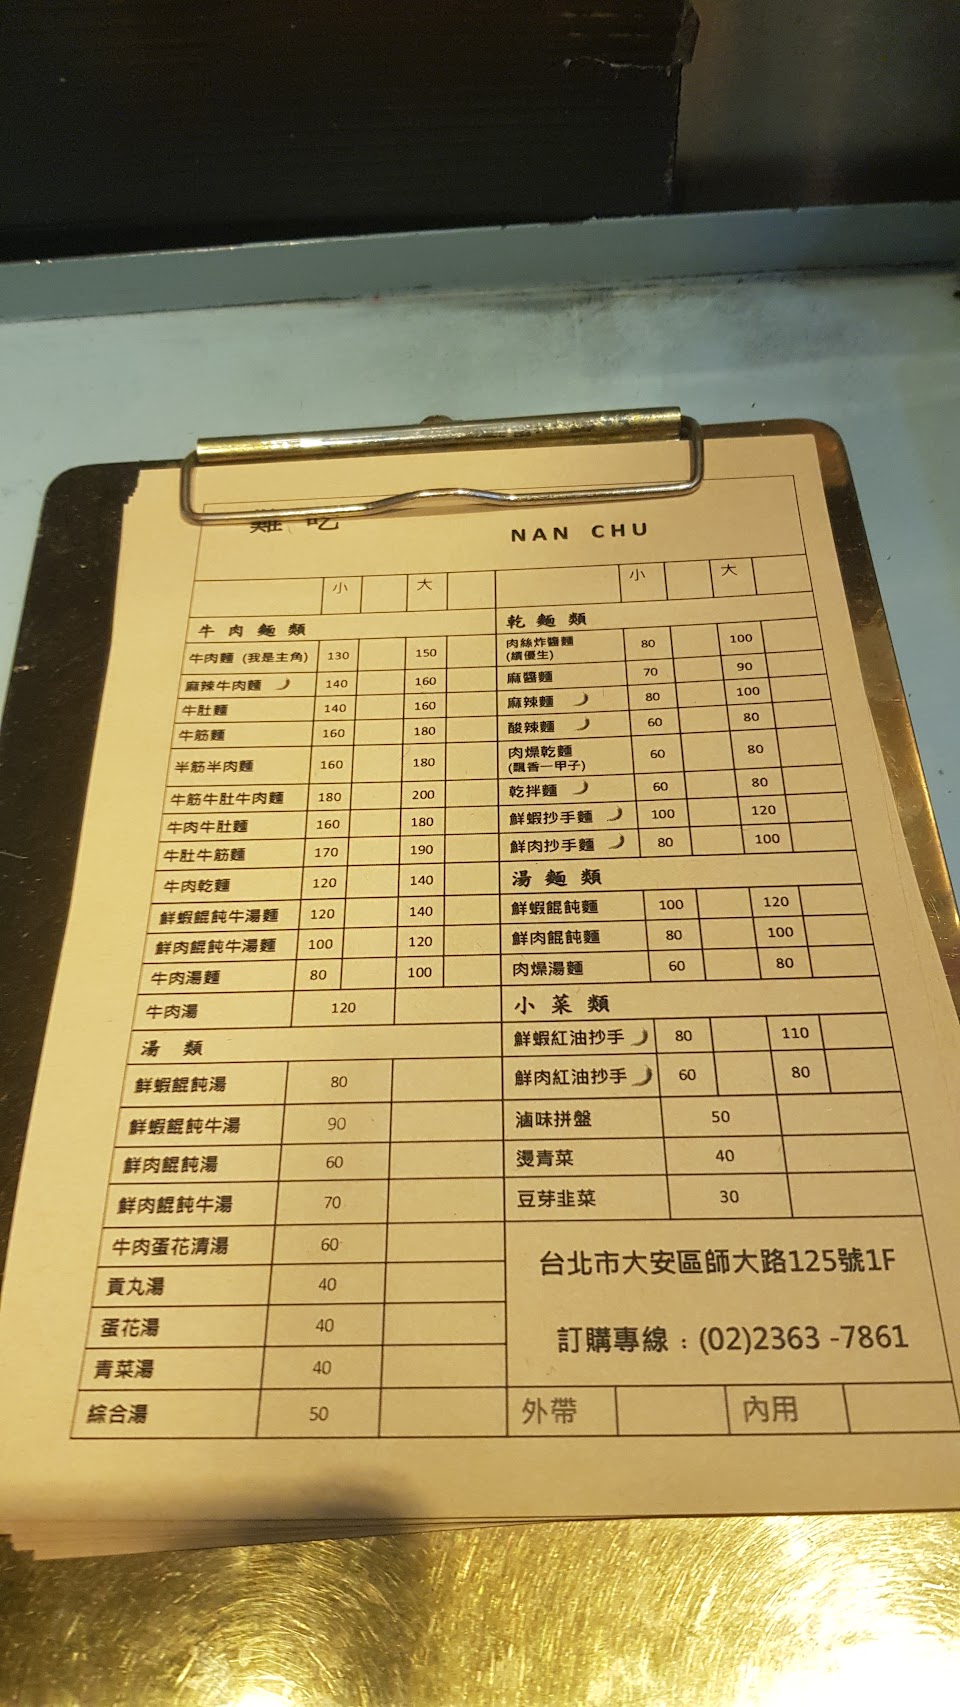 難 吃
NAN CHU
小 大
牛 肉 麵 類
牛肉麵 (我是主角) 130 150
麻辣牛肉麵 140 160
牛肚麵 140 160
牛筋麵 160 180
半筋半肉麵 160 180
牛筋牛肚牛肉麵 180 200
牛肉牛肚麵 160 180
牛肚牛筋麵 170 190
牛肉乾麵 120 140
鮮蝦餛飩牛湯麵 120 140
鮮肉餛飩牛湯麵 100 120
牛肉湯麵 80 100
牛肉湯 120
湯 類
鮮蝦餛飩湯 80
鮮蝦餛飩牛湯 90
鮮肉餛飩湯 60
鮮肉餛飩牛湯 70
牛肉蛋花清湯 60
貢丸湯 40
蛋花湯 40
青菜湯 40
綜合湯 50
小 大
乾 麵 類
肉絲炸醬麵 80 100
(績優生)
麻醬麵 70 90
麻辣麵 80 100
酸辣麵 60 80
肉燥乾麵 60 80
(飄香一甲子)
乾拌麵 60 80
鮮蝦抄手麵 100 120
鮮肉抄手麵 80 100
湯 麵 類
鮮蝦餛飩麵 100 120
鮮肉餛飩麵 80 100
肉燥湯麵 60 80
小 菜 類
鮮蝦紅油抄手 80 110
鮮肉紅油抄手 60 80
滷味拼盤 50
燙青菜 40
豆芽韭菜 30
台北市大安區師大路125號1F
訂購專線：(02)2363 -7861
外帶 內用